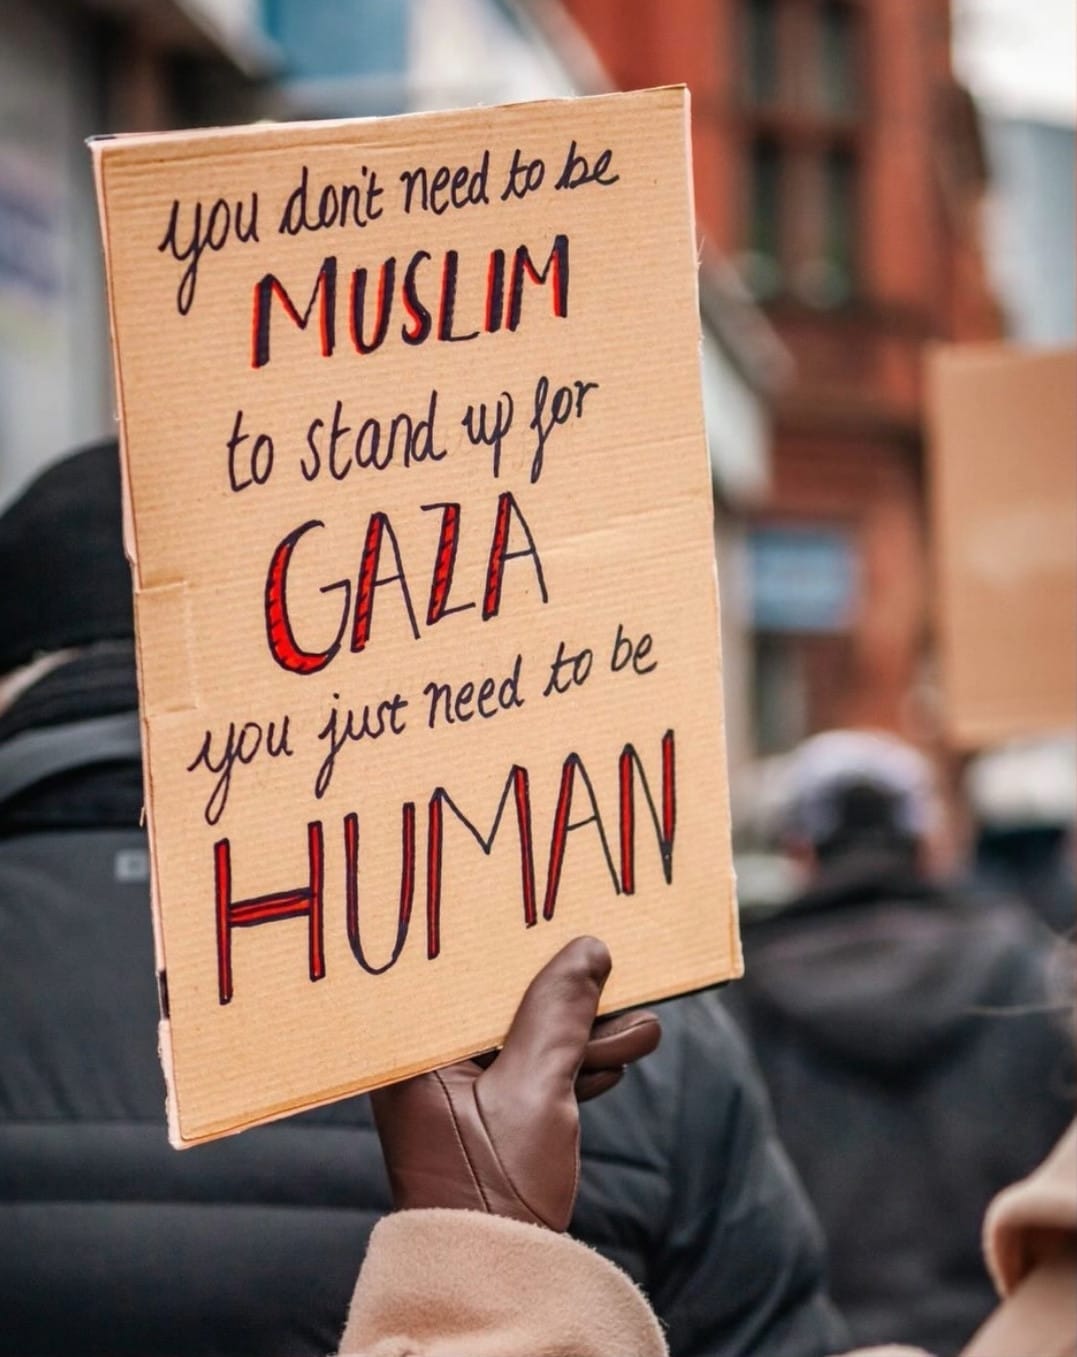 you don't need to be
MUSLIM
to stand up for
GAZA
you just need to be
HUMAN